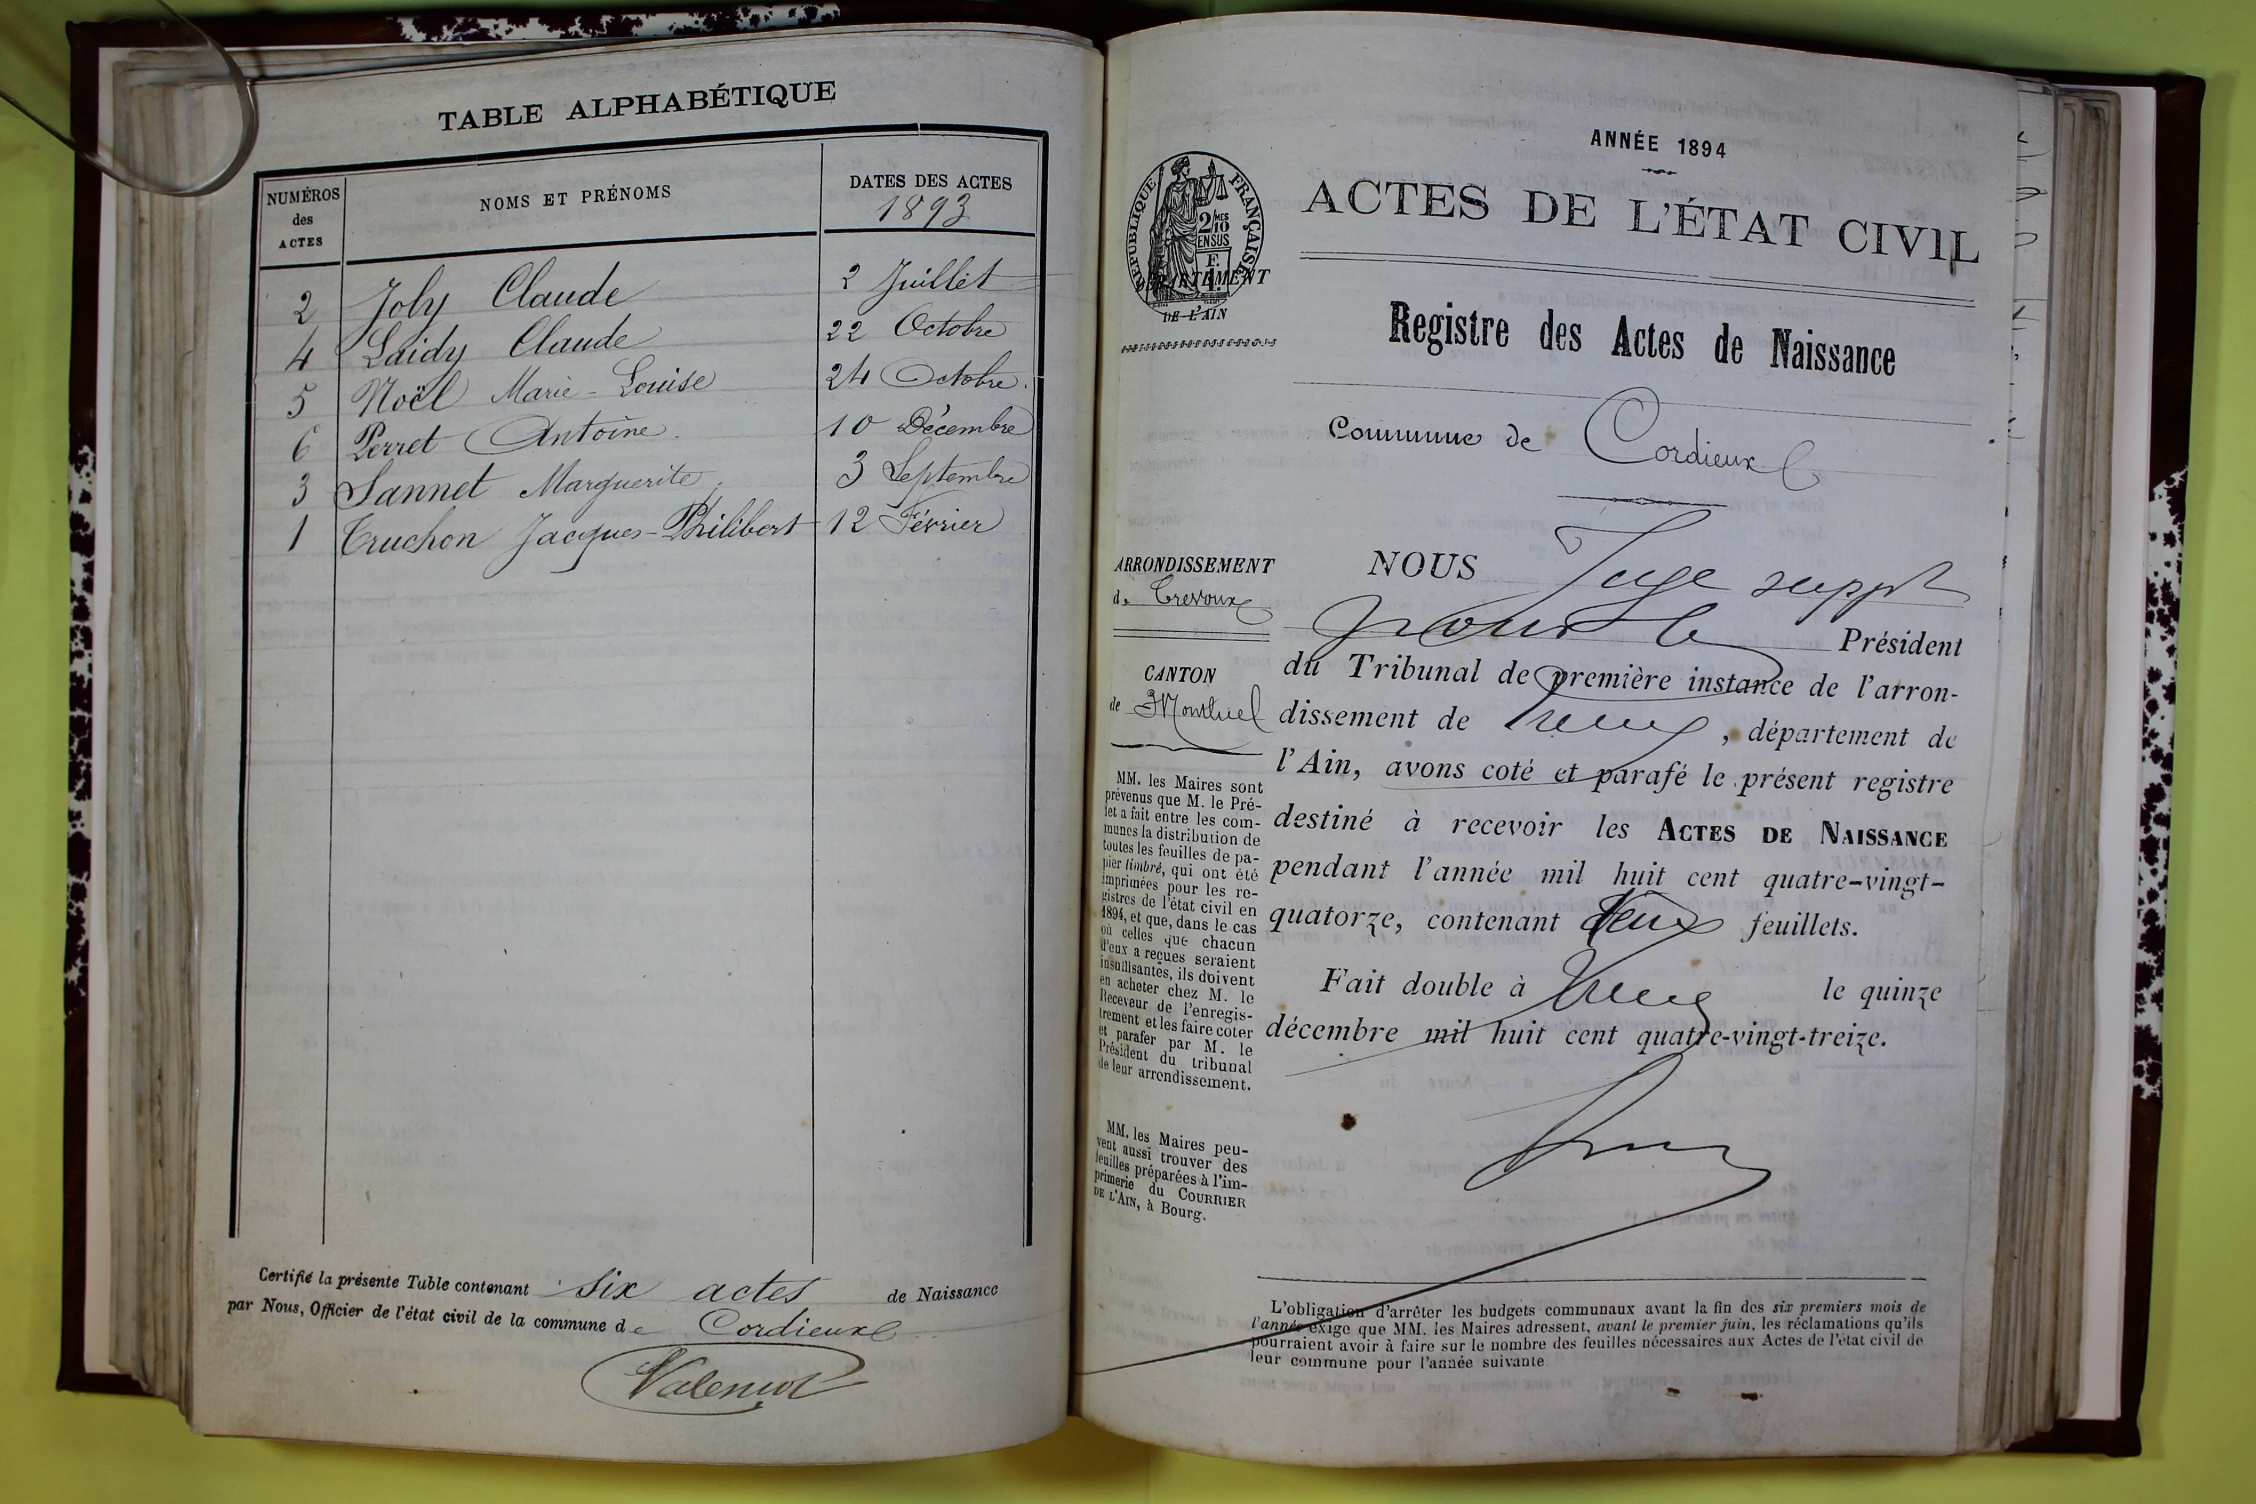 TABLE ALPHABÉTIQUE
NUMÉROS des ACTES
NOMS ET PRÉNOMS
DATES DES ACTES
1893
2 Joly Claude 2 Juillet
4 Laidy Claude 22 Octobre
5 Noël Marie-Louise 24 Octobre.
6 Perret Antoine. 10 Décembre
3 Sannet Marguerite, 3 Septembre
1 Truchon Jacques-Philibert 12 Février
Certifié la présente Table contenant six actes de Naissance
par Nous, Officier de l'état civil de la commune de Cordieux
ANNÉE 1894
ACTES DE L'ÉTAT CIVIL
RÉPUBLIQUE FRANÇAISE
2/10 MES
EN SUS
DÉPARTEMENT
DE L'AIN
Registre des Actes de Naissance
Commune de Cordieux
ARRONDISSEMENT
de Trevoux
CANTON
de Montluel
MM. les Maires sont
prévenus que M. le Pré-
fet a fait entre les com-
munes la distribution de
toutes les feuilles de pa-
pier timbré, qui ont été
imprimées pour les re-
gistres de l'état civil en
1894, et que, dans le cas
où celles que chacun
d'eux a reçues seraient
insuffisantes, ils doivent
en acheter chez M. le
Receveur de l'enregis-
trement et les faire coter
et parafer par M. le
Président du tribunal
de leur arrondissement.
MM. les Maires peu-
vent aussi trouver des
feuilles préparées à l'im-
primerie du COURRIER
DE L'AIN, à Bourg.
NOUS Juge suppt
pour le Président
du Tribunal de première instance de l'arron-
dissement de , département de
l'Ain, avons coté et parafé le présent registre
destiné à recevoir les ACTES DE NAISSANCE
pendant l'année mil huit cent quatre-vingt-
quatorze, contenant deux feuillets.
Fait double à le quinze
décembre mil huit cent quatre-vingt-treize.
L'obligation d'arrêter les budgets communaux avant la fin des six premiers mois de
l'année exige que MM. les Maires adressent, avant le premier juin, les réclamations qu'ils
pourraient avoir à faire sur le nombre des feuilles nécessaires aux Actes de l'état civil de
leur commune pour l'année suivante